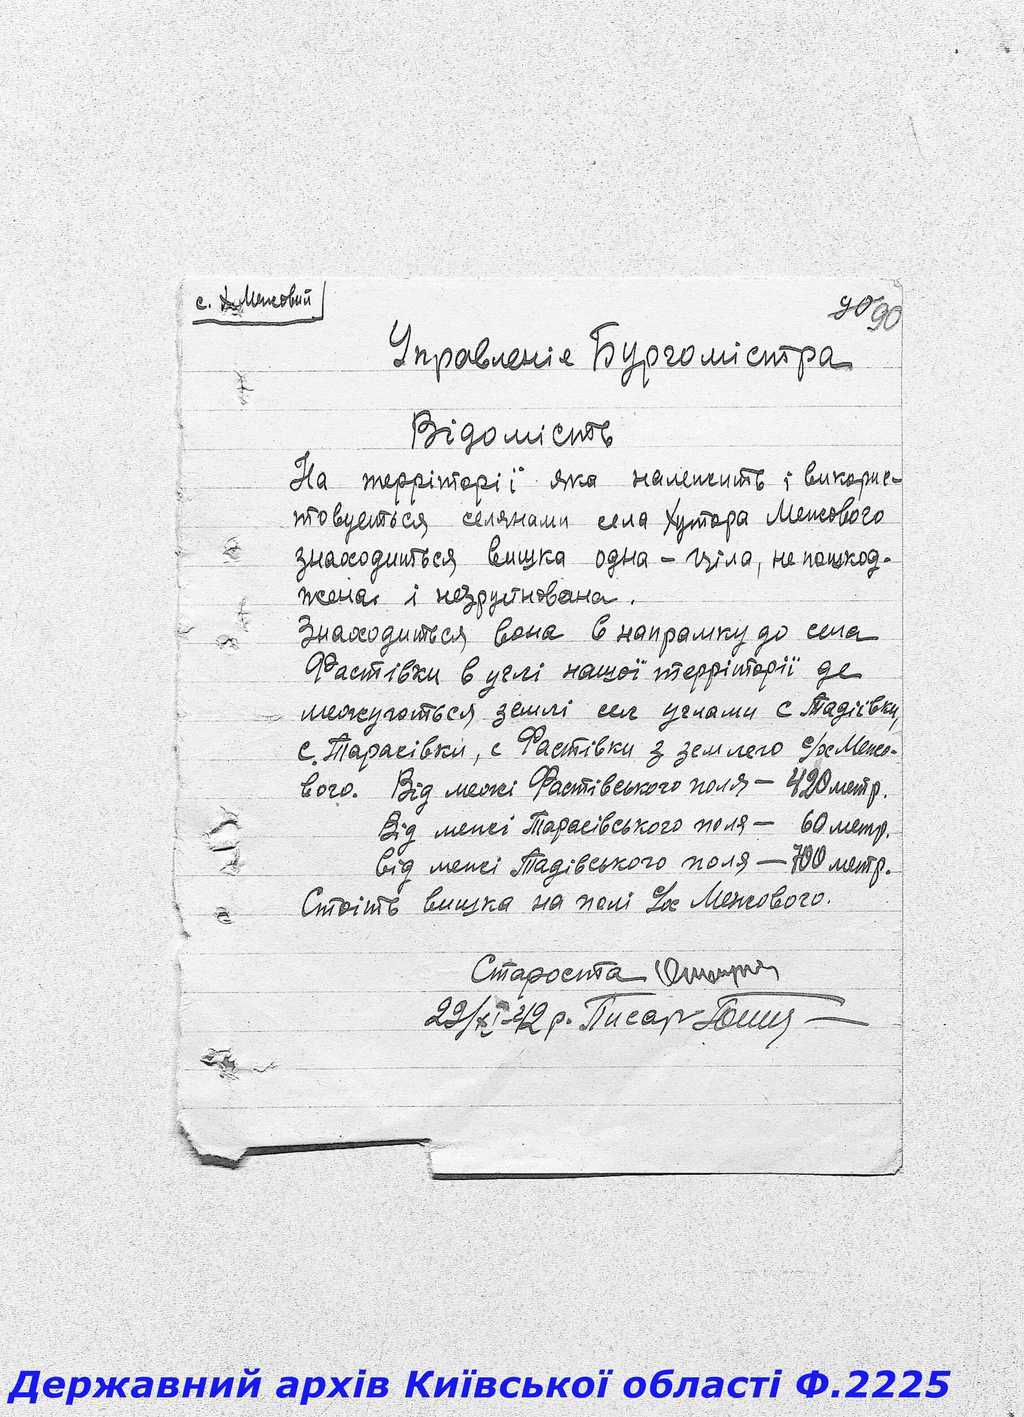 с. Х. Межовий
90 90
Управленіє Бургомістра
Відомість
На террііторії яка належить і викорис-
товується селянами села Хутора Межового
знаходиться вишка одна – ціла, не пошкод-
жена і незруйнована.
Знаходиться вона в напрамку до села
Фастівки в углі нашої террііторії де
межуються землі сел углами с Тадіївки,
с. Тарасівки, с Фастівки з землею с/х Межо-
вого. Від межі Фастівського поля – 420 метр.
Від межі Тарасівського поля – 60 метр.
від межі Тадівського поля – 700 метр.
Стоіть вишка на полі с/х Межового.
Староста
22/XI-42 р. Писар
Державний архів Київської області Ф.2225